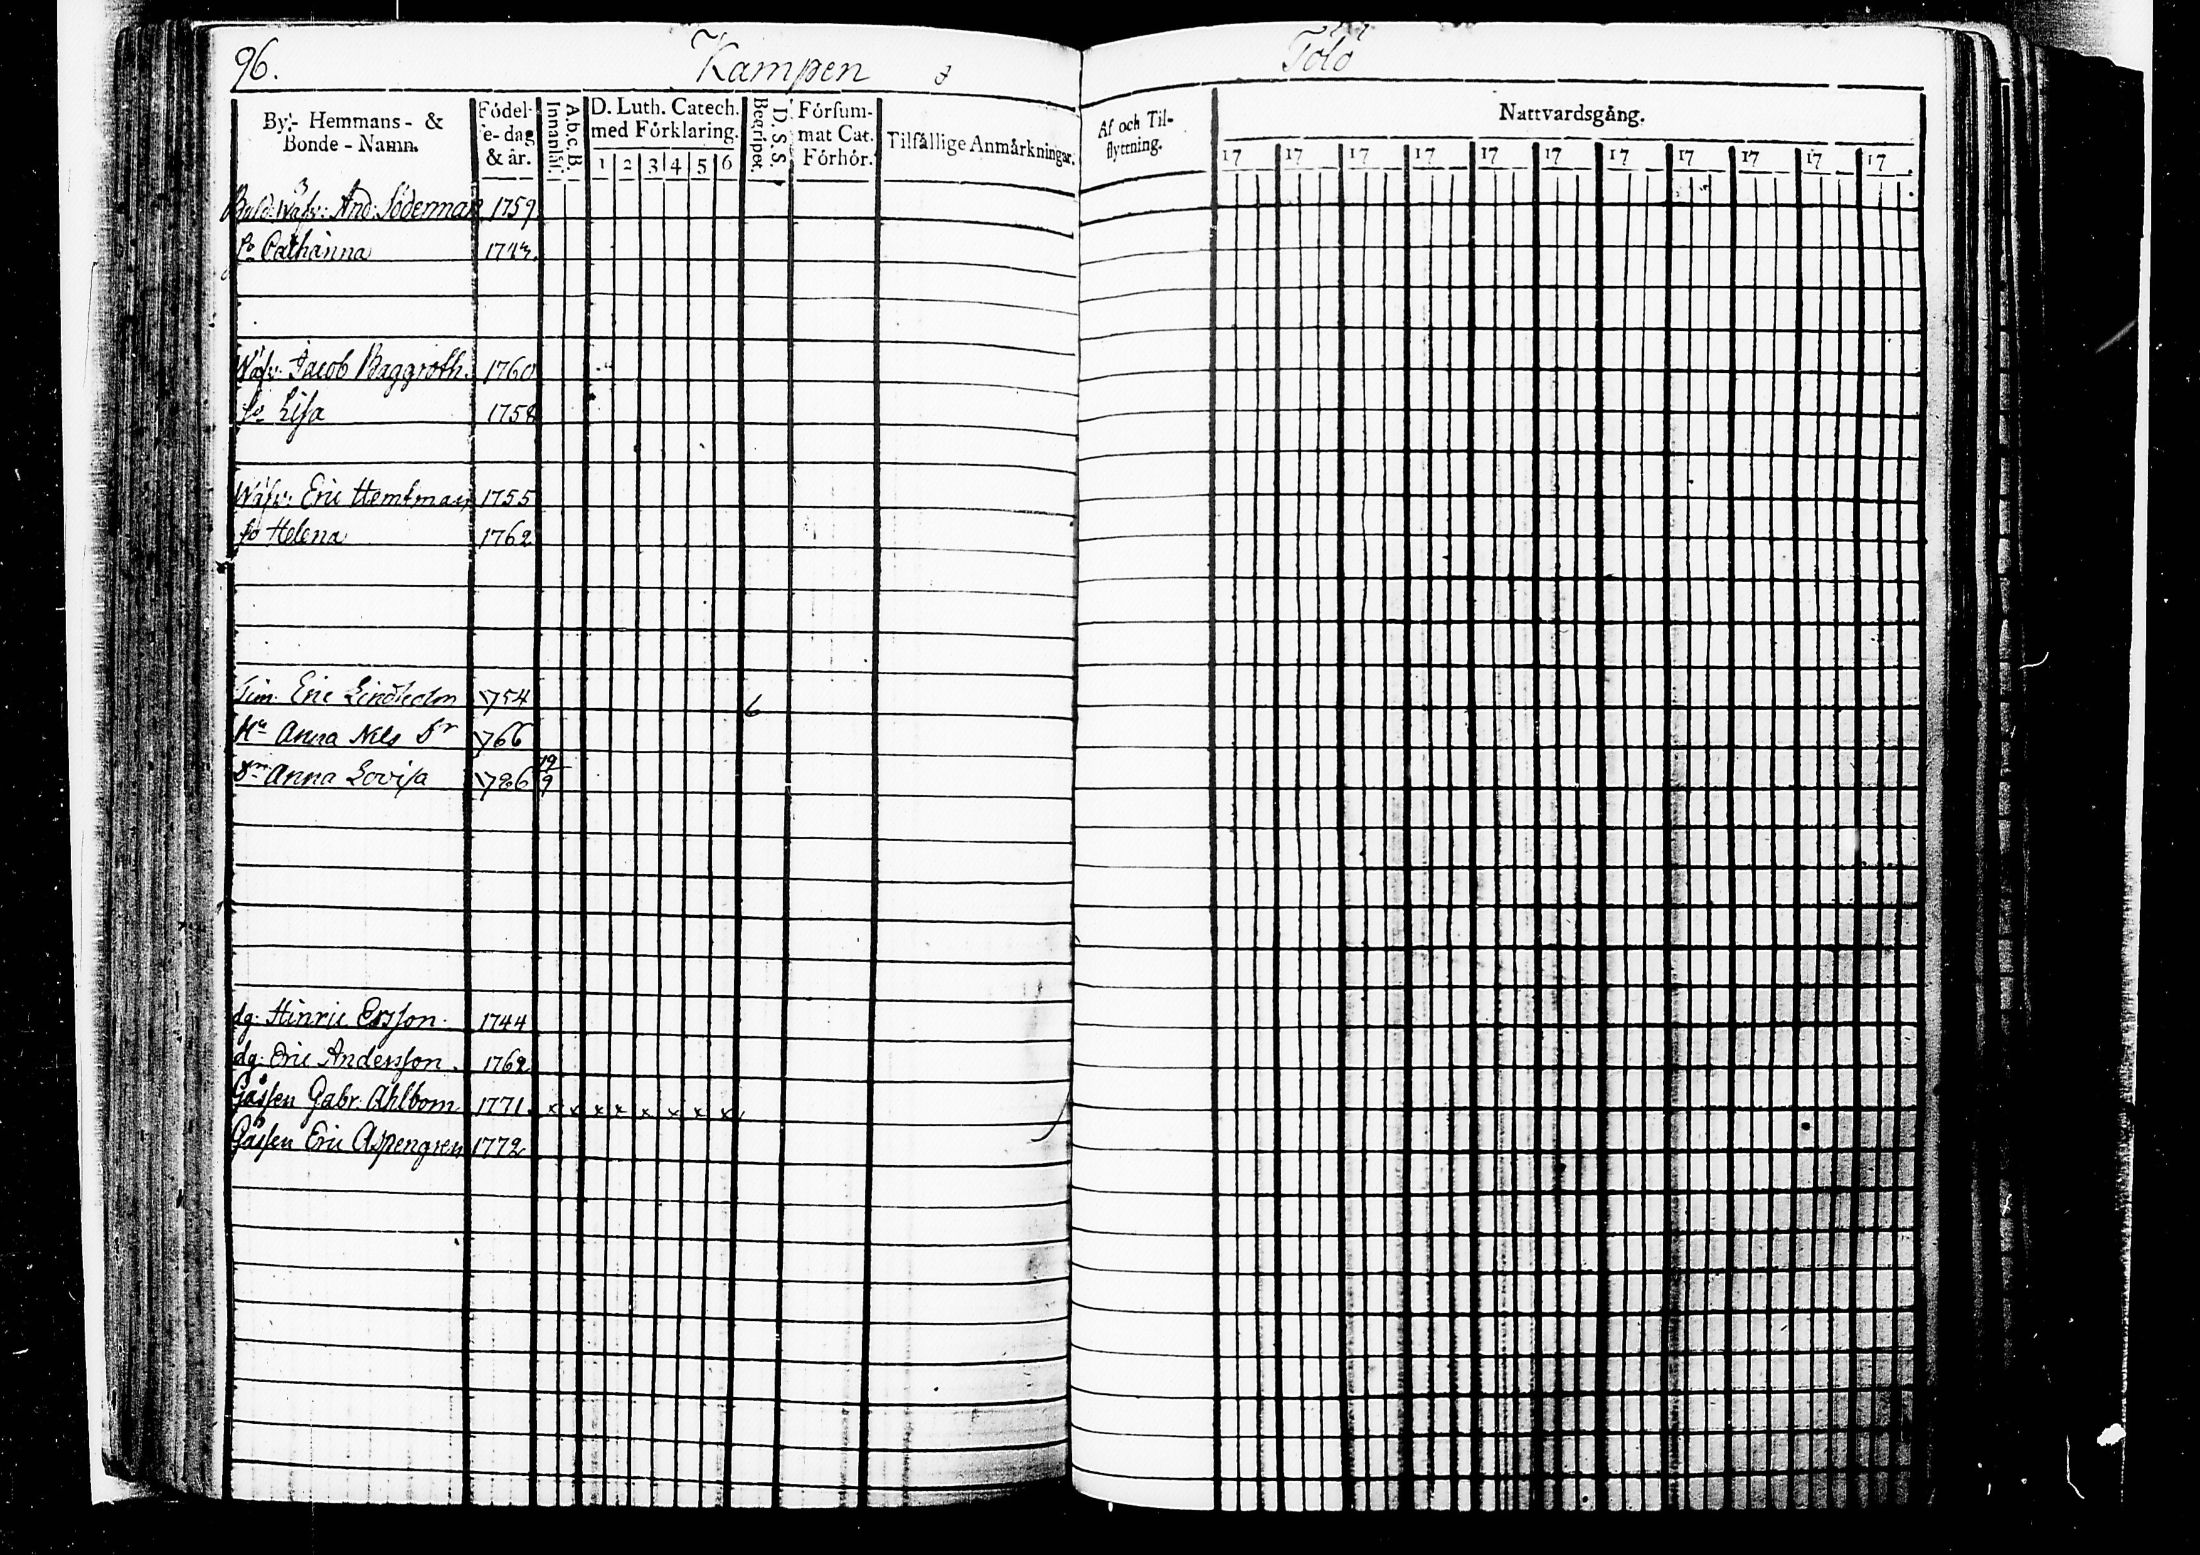 96. Kampen Tölö
By- Hemmans- & Bonde-Namn.
Födel-e-dag & år.
Innanläs.
A.b.c.B.
D. Luth. Catech. med Förklaring.
1 2 3 4 5 6
Begripet.
D.S.S.
Försum-mat Cat. Förhör.
Tilfällige Anmärkningar.
Af och Til-flyttning.
Nattvardsgång.
17 17 17 17 17 17 17 17 17 17 17
And: Söderman 1759
Catharina 1743.
Wäfv: Jacob Baggroth. 1760
Lisa 1758
Wäfv: Eric 1755
Helena 1762
Tim. Eric Lindholm 1754 6
Hu Anna Nils Dr 1766
Dr Anna Lovisa 1786 19/9
dg. Hinric Ersson. 1744
dg. Eric Andersson. 1762
Gåssen Gabr. Ahlbom 1771. x x x x x x x x
Gåssen Eric Aspengren 1772